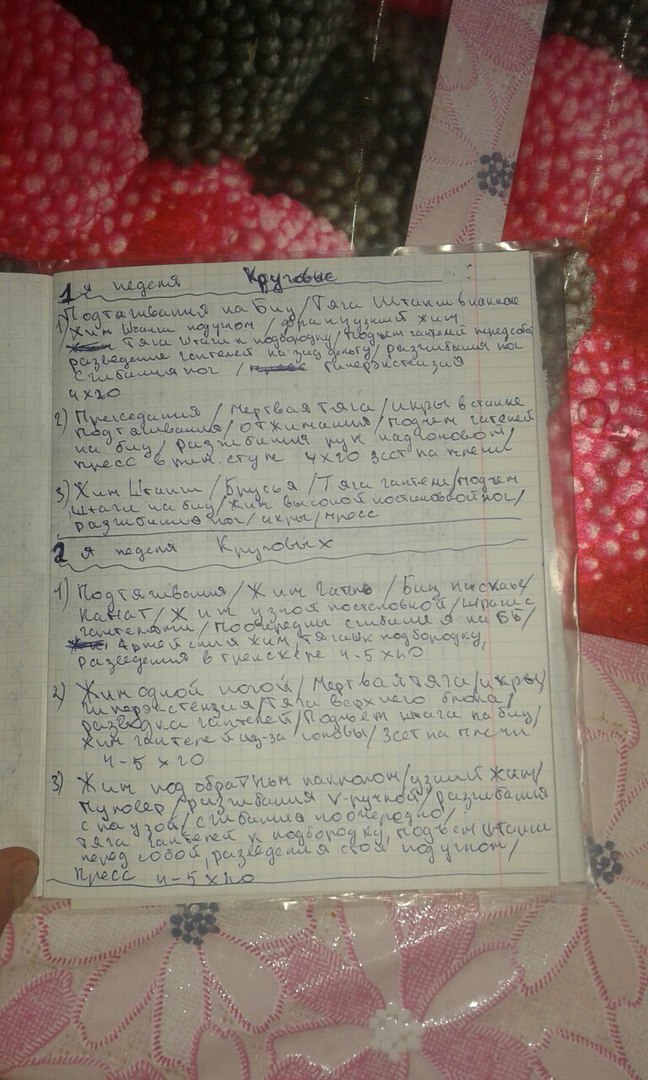 1 я неделя Круговые
1) Подтягивания на Биц / Тяга Штанги в наклоне
Жим Штанги под углом / французский жим
Тяга Штанги к подбородку / подъем гантелей перед собой
разведение гантелей на зад дельту / разгибания ног
сгибания ног / гиперэкстензия
4х20
2) Приседания / Мертвая тяга / икры в станке
Подтягивания / отжимания / подъем гантелей
на биц / разгибания рук над головой /
пресс в рим. стуле 4х20 3 сет на плечи
3) Жим Штанги / Брусья / Тяга гантели / подъем
штанги на биц / Жим высокой постановкой ног /
разгибания ног / икры / пресс
2 я неделя Круговых
1) Подтягивания / Жим гант / Биц на скамье /
Канат / Жим узкой постановкой / шраги с
гантелями / Поочередны сгибания на Бб /
Армейский жим, тяга к подбородку,
разведения в тренажере 4-5 х 20
2) Жим одной ногой / Мертвая тяга / икры /
гиперэкстензия / Тяга верхнего блока /
разводка гантелей / Подъем штанги на биц /
Жим гантелей из-за головы / 3 сет на плечи
4-5 х 20
3) Жим под обратным наклоном / узкий жим /
Пуловер / разгибания V-ручкой / разгибания
с паузой / сгибания поочередно /
тяга гантелей к подбородку, подъем штанги
перед собой, разведения стоя под углом /
пресс 4-5 х 20